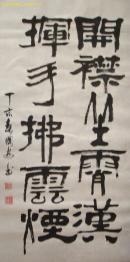 開襟坐霄漢
揮手拂雲煙
丁亥夏